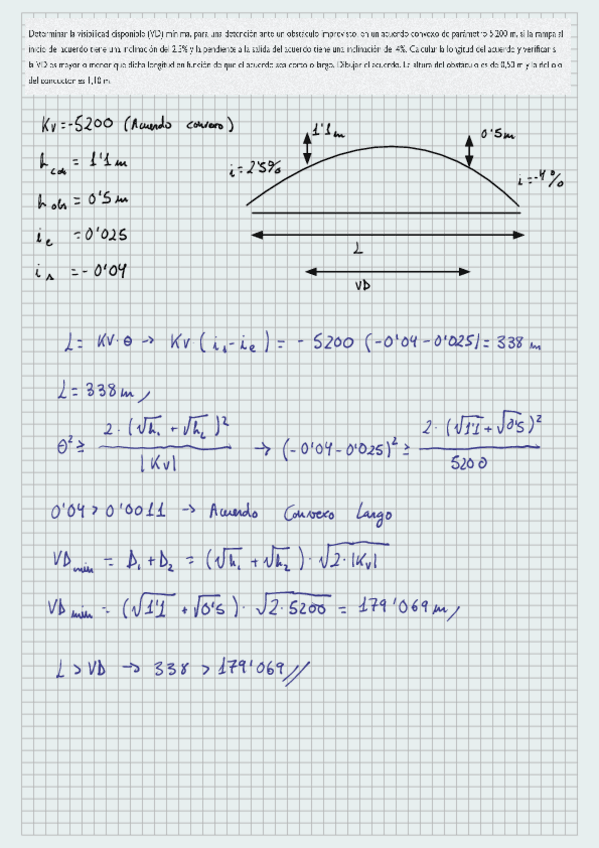 Determinar la visibilidad disponible (VD) mínima, para una detención ante un obstáculo imprevisto, en un acuerdo convexo de parámetro 5.200 m, si la rampa al
inicio del acuerdo tiene una inclinación del 2,5% y la pendiente a la salida del acuerdo tiene una inclinación de 4%. Calcular la longitud del acuerdo y verificar si
la VD es mayor o menor que dicha longitud en función de que el acuerdo sea corto o largo. Dibujar el acuerdo. La altura del obstáculo es de 0,50 m y la del ojo
del conductor es 1,10 m.
Kv = -5200 (Acuerdo convexo)
h con = 1'1 m
h obs = 0'5 m
i e = 0'025
i s = - 0'04
1'1 m
0'5 m
i = 2'5%
i = -4%
L
VD
L = KV · θ → Kv (i s - i e) = - 5200 (-0'04 - 0'025) = 338 m
L = 338 m,
θ² ≥ 2 · (√h₁ + √h₂)² / |Kv| → (-0'04 - 0'025)² ≥ 2 · (√1'1 + √0'5)² / 5200
0'04 > 0'0011 → Acuerdo Convexo Largo
VD min = D₁ + D₂ = (√h₁ + √h₂) · √2 · |Kv|
VD min = (√1'1 + √0'5) · √2 · 5200 = 179'069 m,
L > VD → 338 > 179'069 //